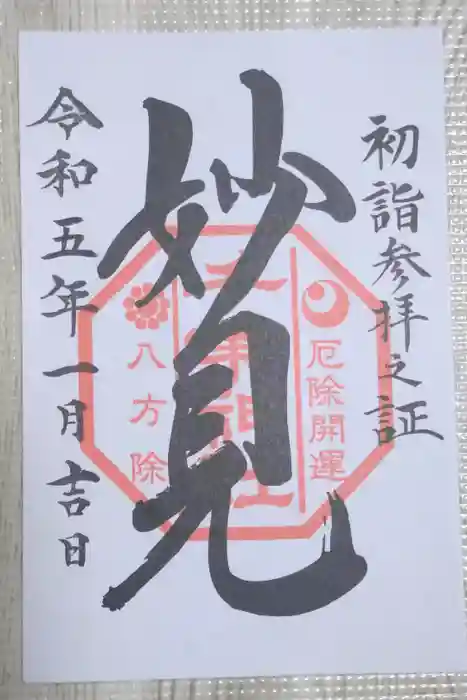 初詣参拝之証
妙見
厄除開運
千葉神社
八方除
令和五年一月吉日